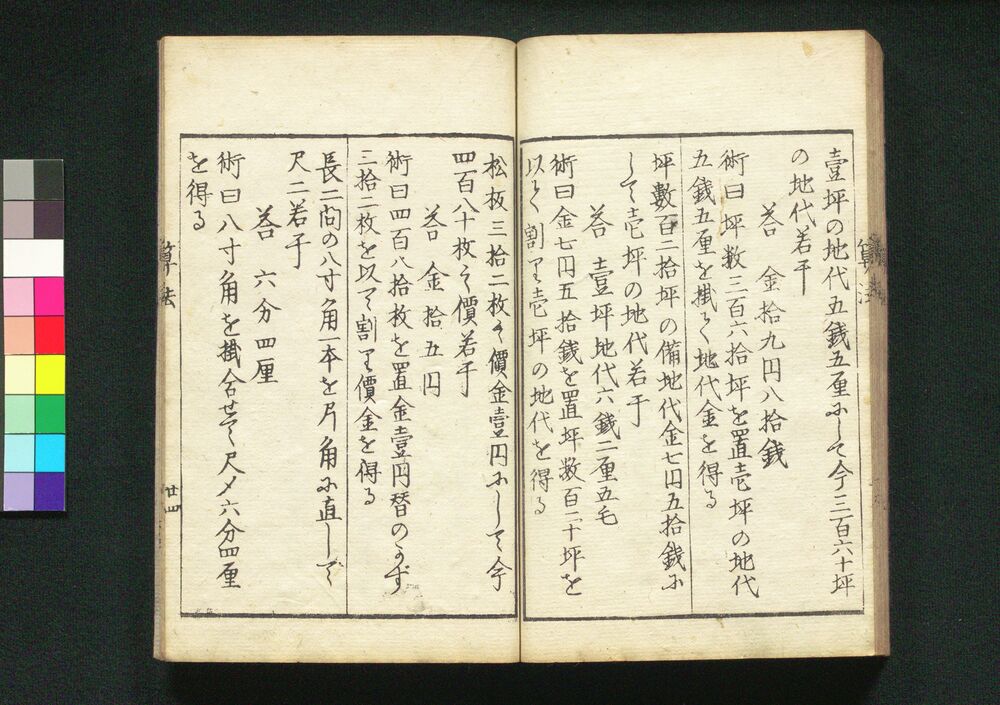 壹坪の地代五銭五厘ふして今三百六十坪
の地代若干
答　金拾九円八拾銭
術曰坪数三百六拾坪を置壱坪の地代
五銭五厘を掛て地代金を得る
坪數百二拾坪の備地代金七円五拾銭ふ
して壱坪の地代若干
答　壹坪地代六銭二厘五毛
術曰金七円五拾銭を置坪数百二十坪を
以て割り壱坪の地代を得る
松板三拾二枚の價金壹円ふして今
四百八十枚の價若干
答　金拾五円
術曰四百八拾枚を置金壹円替の
三拾二枚を以て割り價金を得る
長二間の八寸角一本を尺角ふ直して
尺二若干
答　六分四厘
術曰八寸角を掛合せて尺〆六分四厘
を得る
算法
廿四